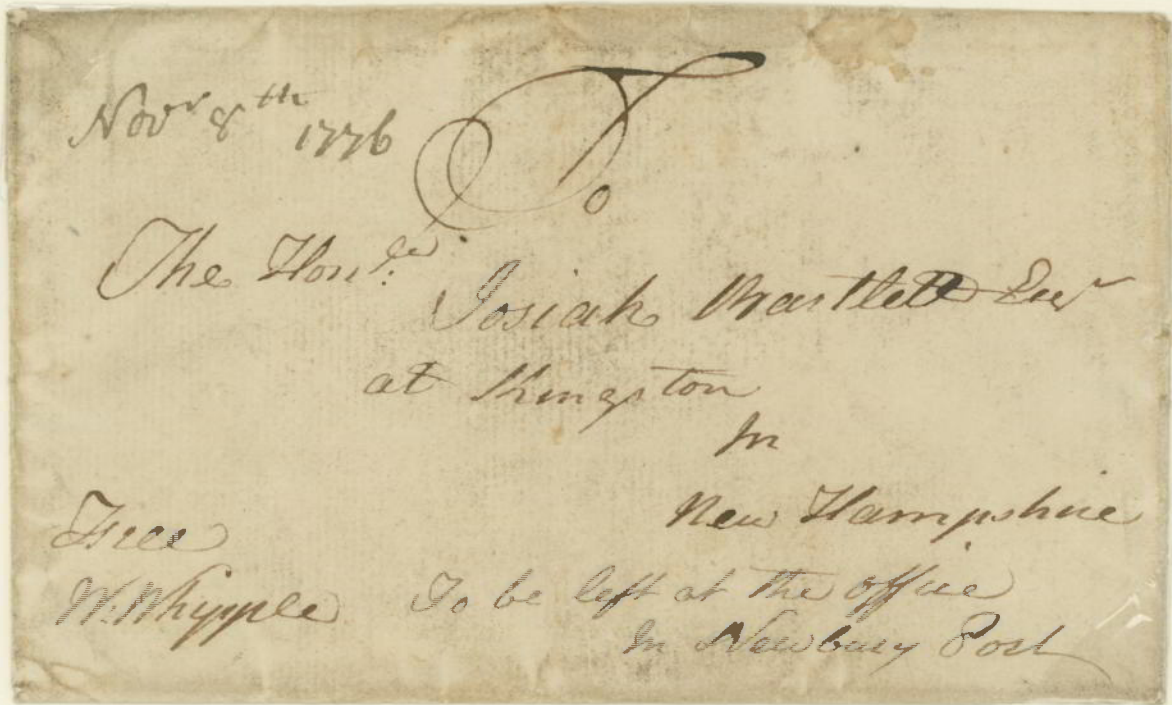 Novr 8th 1776
To
The Honle
Josiah Bartlett Esqr
at Kingston
In
New Hampshire
Free
W. Whipple
To be left at the office
In Newbury Port